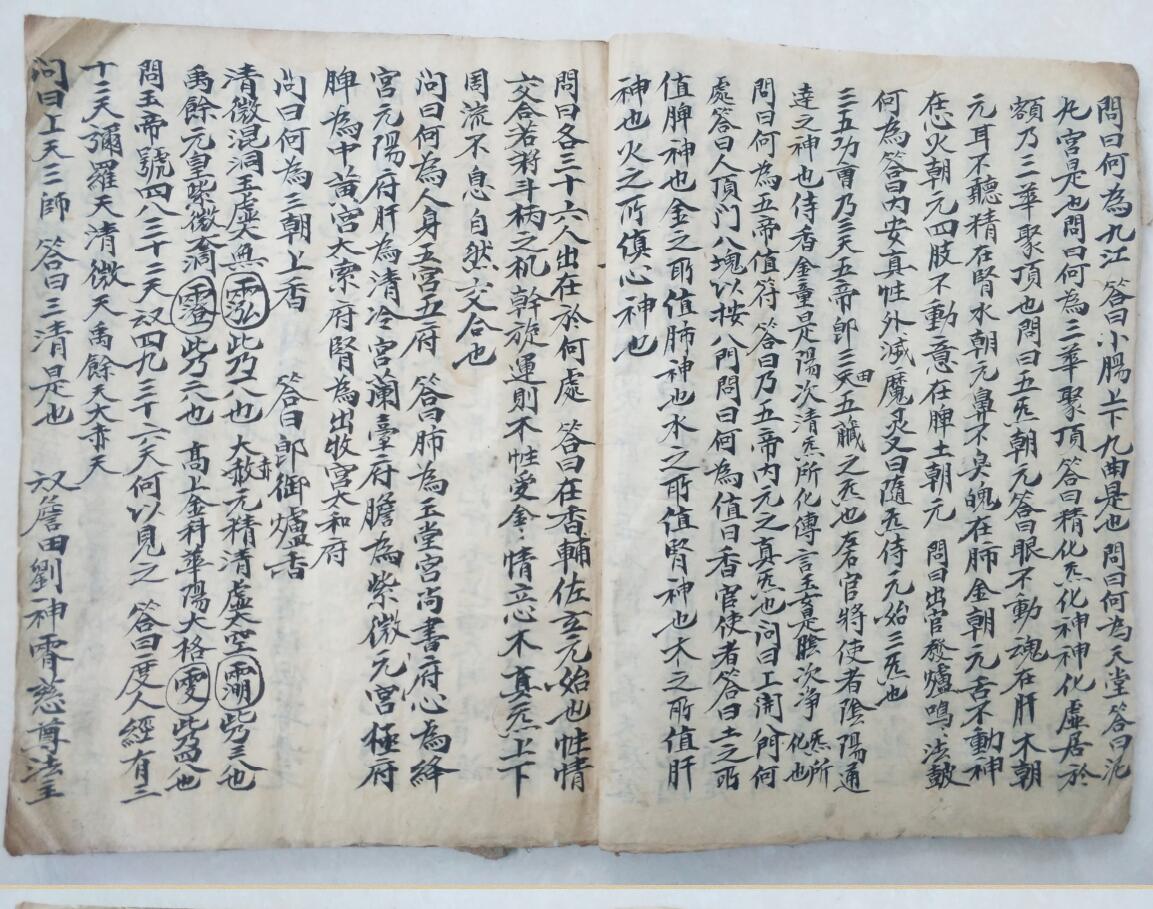 問曰何為九江 答曰小腸上下九曲是也 問曰何為天堂答曰泥
丸宮是也問曰何為三華聚頂答曰精化炁炁化神神化虛居於
額乃三華聚頂也問曰五炁朝元答曰眼不動魂在肝木朝
元耳不聽精在腎水朝元鼻不臭魄在肺金朝元舌不動神
在心火朝元四肢不動意在脾土朝元 問曰出官發爐鳴法鼓
何為答曰內安真性外滅魔炅又曰隨炁侍元始三炁也
三五功曹乃三天五帝即三田五臟之炁也左右官將使者陰陽通
達之神也侍香金童是陽次清炁所化傳言玉女是陰次净炁所化也
問曰何為五帝值符 答曰乃五帝內元之真炁也問曰上開八門何
處答曰人頂門八塊以按八門問曰何為值日香官使者答曰土之所
值脾神也金之所值肺神也水之所值腎神也木之所值肝
神也火之所值心神也
問曰各三十六人出在於何處 答曰在香輔佐玄元始也性情
交合若斡斗柄之机幹旋運則不性愛金情立心木真炁上下
周流不息自然交合也
问曰何為人身五宮五府 答曰肺為玉堂宮尚書府心為絳
宮元陽府肝為清冷宮蘭臺府膽為紫微元宮極府
脾為中黃宮太素府腎為出收宮太和府
问曰何為三朝上香 答曰即御爐香
清微混洞玉虛太無 此乃一八也 大赦赤元精清虛太空 此乃三也
禹餘元皇紫微 霐 此乃二也 高上金科華陽大格 雯 此乃四也
問玉帝號四八三十二天又四九三十六天何以見之 答曰度人經有三
十二天彌羅天清微天禹餘天大赤天
问曰上天三師 答曰三清是也 又詹田劉神霄慈尊法主